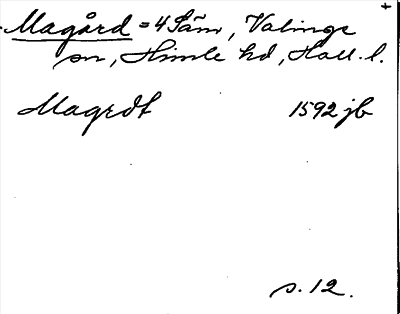 Magård = 4 Säm, Valinge
sn, Himle hd, Hall. l.
Magrdt 1592 jb
s. 12.